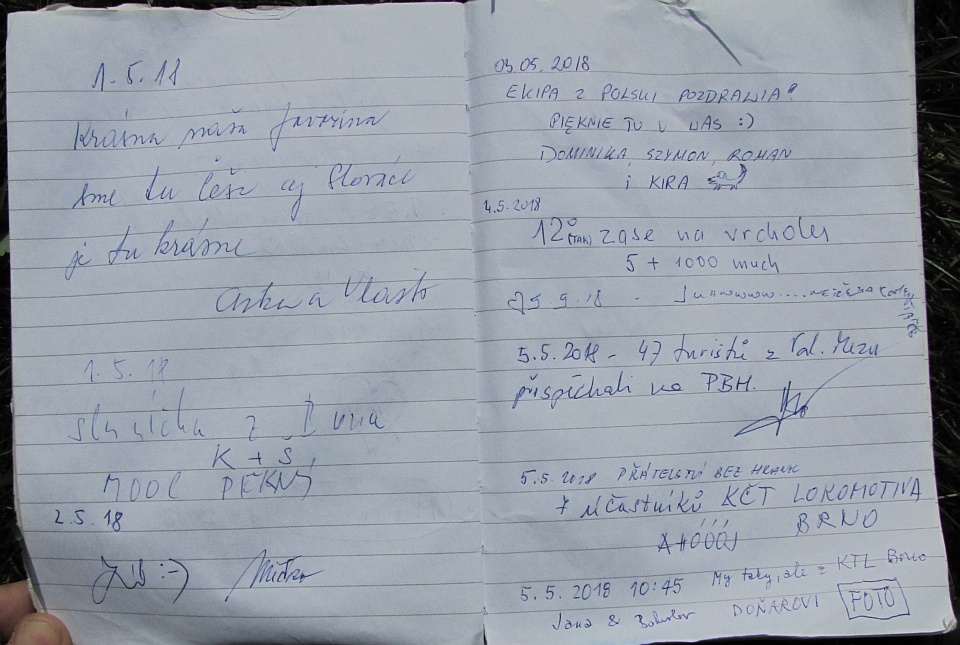 1.5.18
Krásna naša Javorina
sme tu Češi aj Slováci
je tu krásne
a Vlasto
1.5.18
z Brna
K + Š
MOOC PĚKNÝ
2.5.18
:-)
03.05.2018
EKIPA Z POLSKI POZDRAWIA!
PIĘKNIE TU U WAS :)
DOMINIKA, SZYMON, ROMAN
i KIRA
4.5.2018
12° (TAK) zase na vrcholu
5 + 1000 much
5.5.2018 - 47 turistů z Val. Mezu
přispíchali na PBH.
5.5.2018 PŘÁTELSTVÍ BEZ HRANIC
7 účastníků KČT LOKOMOTIVA
BRNO
AHÓÓÓJ
5.5.2018 10:45 My taky, ale z KTL Brno
Jana & DOŇAROVI FOTO